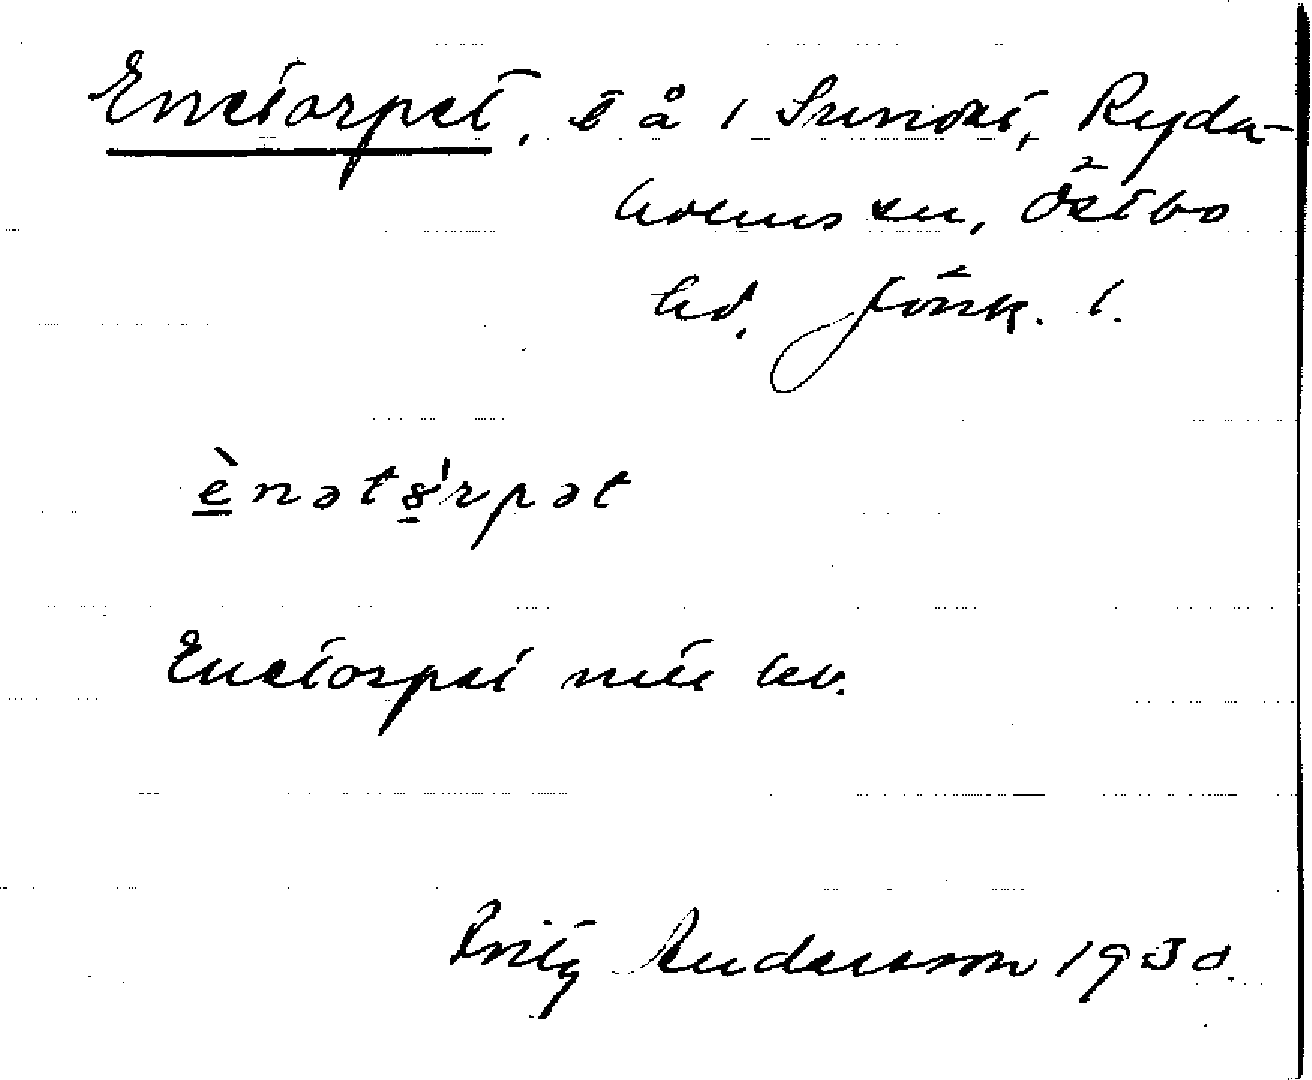 Enetorpet, t å i Sunnert, Ryda-
holms sn, Östbo
hd. Jönk. l.
ènət8'rpət
Enetorpet mtu hv.
Fritz Andersson 1930.